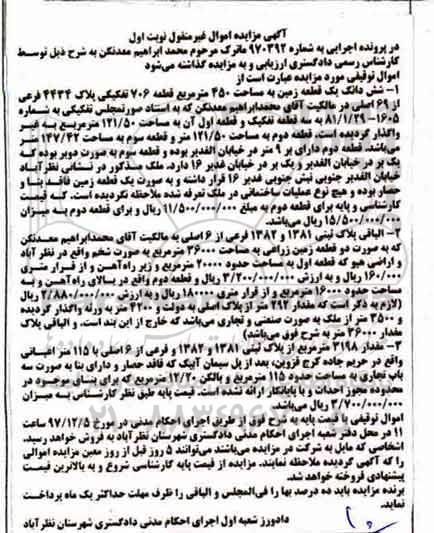 آگهی مزایده اموال غیرمنقول نوبت اول
در پرونده اجرایی به شماره ۹۷۰۳۹۲ ماترک مرحوم محمد ابراهیم معدنکن به شرح ذیل توسط
کارشناس رسمی دادگستری ارزیابی و به مزایده گذاشته می‌شود
اموال توقیفی مورد مزایده عبارت است از
۱- شش دانگ یک قطعه زمین به مساحت ۴۵۰ مترمربع قطعه ۷۰۶ تفکیکی پلاک ۴۴۳۴ فرعی
از ۶۹ اصلی در مالکیت آقای محمدابراهیم معدنکن که به استناد صورتمجلس تفکیکی به شماره
۱۶۰۵- ۸۱/۱/۲۹ به سه قطعه تفکیک و قطعه اول آن به مساحت ۱۲۱/۵۰ مترمربع به غیر
واگذار گردیده است. قطعه دوم به مساحت ۱۲۱/۵۰ متر و قطعه سوم به مساحت ۱۴۷/۴۲ متر
می‌باشد. قطعه دوم دارای بر ۹ متر در خیابان الغدیر بوده و قطعه سوم به صورت دوبر بوده که
یک بر در خیابان الغدیر و یک بر در خیابان غدیر ۱۶ دارد. ملک مذکور در نشانی نظرآباد
خیابان الغدیر جنوبی نبش جنوبی غدیر ۱۶ قرار داشته و به صورت یک قطعه زمین فاقد بنا و
حصار بوده و هیچ نوع عملیات ساختمانی در ملک تعرفه شده ملاحظه نگردیده است. که قیمت
کارشناسی و پایه برای قطعه دوم به مبلغ ۱۱/۵۰۰/۰۰۰/۰۰۰ ریال و برای قطعه دوم به میزان
۱۵/۵۰۰/۰۰۰/۰۰۰ ریال می‌باشد.
۲- الباقی پلاک ثبتی ۱۳۸۱ و ۱۳۸۲ فرعی از ۶ اصلی به مالکیت آقای محمدابراهیم معدنکن
که به صورت دو قطعه زمین زراعی به مساحت ۳۶۰۰۰ مترمربع به صورت شخم واقع در نظر آباد
و اراضی هیو که قطعه اول به مساحت حدود ۲۰۰۰۰ مترمربع و زیر راه‌آهن و از قرار متری
۱۶۰/۰۰۰ ریال و به ارزش ۳/۲۰۰/۰۰۰/۰۰۰ ریال و قطعه دوم واقع در بالای راه‌آهن و به
مساحت حدود ۱۶۰۰۰ مترمربع و از قرار متری ۱۸۰۰۰۰ ریال و به ارزش ۲/۸۸۰/۰۰۰/۰۰۰ ریال
(لازم به ذکر است که مقدار ۲۹۲ متر از پلاک اصلی به دولت و ۴۲۰۰ متر به ورثه واگذار گردیده
و ۳۵۰۰ متر از ملک به صورت صنعتی و تجاری می‌باشد که خارج از این بند است. و الباقی پلاک
مقدار ۳۶۰۰۰ متر به شرح فوق می‌باشد)
۳- مقدار ۳۱۹۸ مترمربع از پلاک ثبتی ۱۳۸۱ و ۱۳۸۲ و فرعی از ۶ اصلی با ۱۱۵ متر اعیانی
واقع در حریم جاده کرج قزوین، بعد از پل سیمان آبیک که فاقد حصار و دارای بنا به صورت سه
باب تجاری به مساحت حدود ۱۱۵ مترمربع و بالکن ۱۲/۲۰ مترمربع که برای بنای موجود در
محدوده مجوز احداث و یا پایانکار ارائه نشده است. قیمت پایه طبق نظر کارشناسی به میزان
۳/۷۰۰/۰۰۰/۰۰۰ ریال می‌باشد.
اموال توقیفی با قیمت پایه به شرح فوق از طریق اجرای احکام مدنی در مورخ ۹۷/۱۲/۵ ساعت
۱۱ در محل دفتر شعبه اجرای احکام مدنی دادگستری شهرستان نظرآباد به فروش خواهد رسید.
اشخاصی که مایل به شرکت در مزایده می‌باشند می‌توانند ۵ روز قبل از روز معین مزایده اموالی
را که آگهی گردیده ملاحظه نمایند. مزایده از قیمت پایه کارشناسی شروع و به بالاترین قیمت
پیشنهادی فروخته خواهد شد.
برنده مزایده باید ده درصد بها را فی‌المجلس و الباقی را ظرف مهلت حداکثر یک ماه پرداخت
نماید.
دادورز شعبه اول اجرای احکام مدنی دادگستری شهرستان نظرآباد